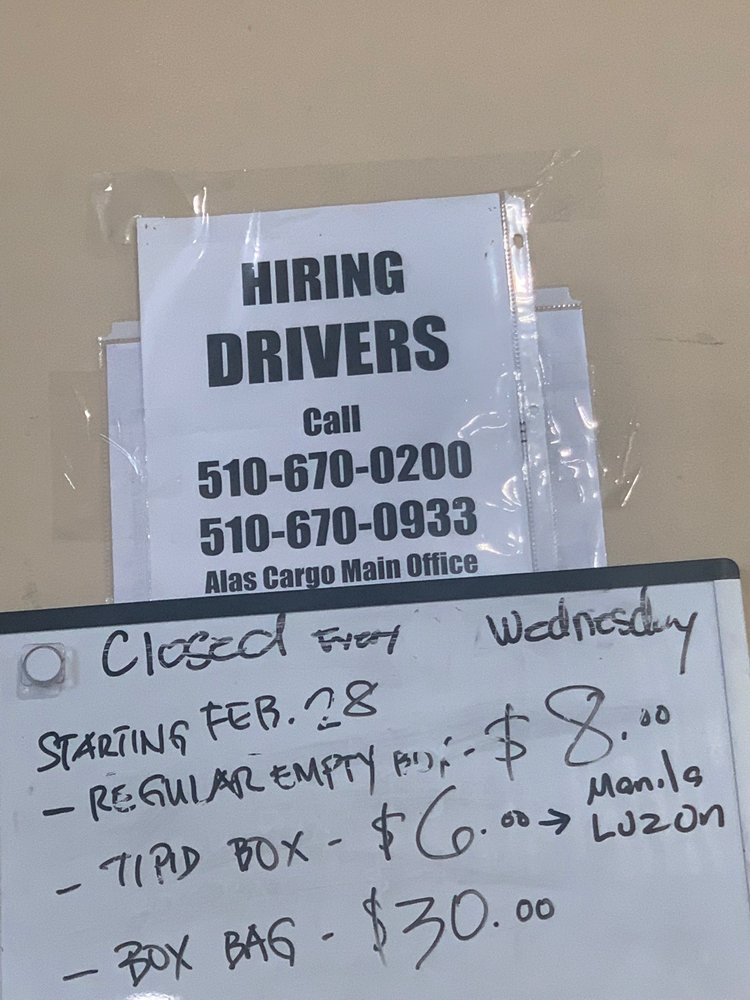 HIRING
DRIVERS
Call
510-670-0200
510-670-0933
Alas Cargo Main Office
Closed Every Wednesday
STARTING FEB. 28
- REGULAR EMPTY BOX - $8.00
- TIPID BOX - $6.00 → Manila
LUZON
- BOX BAG - $30.00